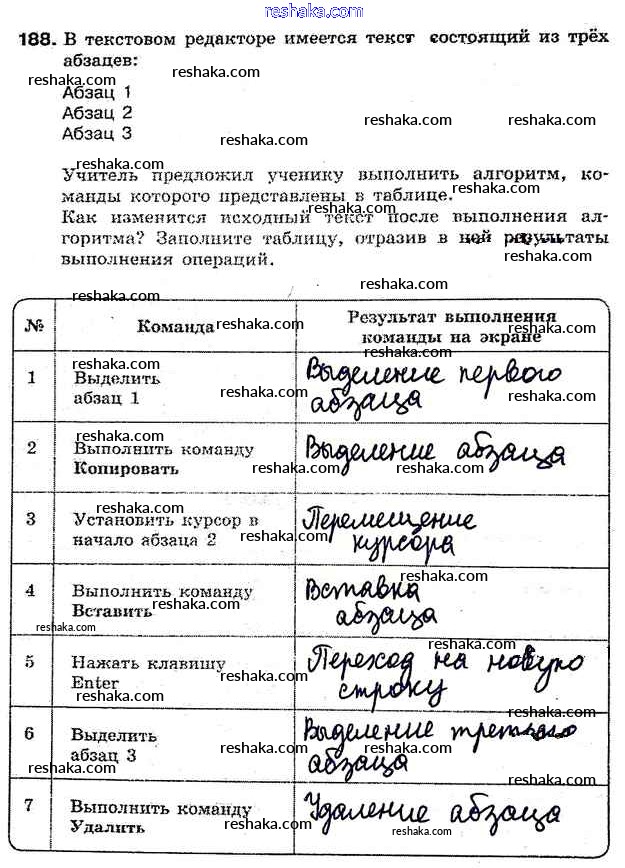 reshaka.com
188. В текстовом редакторе имеется текст состоящий из трёх
reshaka.com
абзацев:
reshaka.com
Абзац 1
reshaka.com
reshaka.com
Абзац 2
reshaka.com
Абзац 3
reshaka.com
reshaka.com
reshaka.com
Учитель предложил ученику выполнить алгоритм, ко-
манды которого представлены в таблице.
reshaka.com
reshaka.com
Как изменится исходный текст после выполнения ал-
горитма? Заполните таблицу, отразив в ней результаты
reshaka.com
выполнения операций.
reshaka.com
reshaka.com
№
Команда
reshaka.com
Результат выполнения
команды на экране
reshaka.com
reshaka.com
1
Выделить
абзац 1
reshaka.com
Выделение первого
абзаца
reshaka.com
reshaka.com
2
Выполнить команду
Копировать
reshaka.com
Выделение абзаца
reshaka.com
reshaka.com
3
Установить курсор в
начало абзаца 2
reshaka.com
Перемещение
курсора
reshaka.com
reshaka.com
4
Выполнить команду
Вставить
reshaka.com
Вставка
абзаца
reshaka.com
reshaka.com
5
Нажать клавишу
Enter
reshaka.com
Переход на новую
строку
reshaka.com
reshaka.com
6
Выделить
абзац 3
reshaka.com
reshaka.com
Выделение третьего
абзаца
reshaka.com
reshaka.com
7
Выполнить команду
Удалить
reshaka.com
Удаление абзаца
reshaka.com